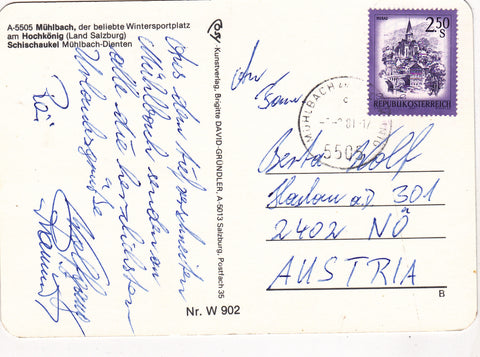 A-5505 Mühlbach, der beliebte Wintersportplatz
am Hochkönig (Land Salzburg)
Schischaukel Mühlbach-Dienten
Aus dem tiefverschneiten
Mühlbach senden an
alle die herzlichsten
Urlaubsgrüße
Kunstverlag, Brigitte DAVID-GRÜNDLER, A-5013 Salzburg, Postfach 35
Nr. W 902
2,50
S
REPUBLIK ÖSTERREICH
MÜHLBACH
5505
An
Berta Wolf
Haslau a/D 301
2402 NÖ
AUSTRIA
B